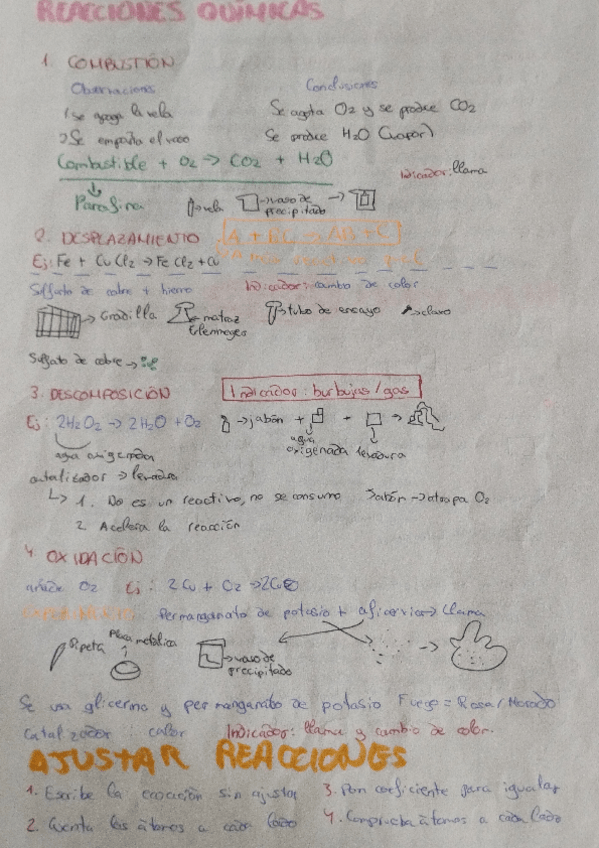 REACCIONES QUÍMICAS
1. COMBUSTIÓN
Observaciones Conclusiones
1 Se apaga la vela Se agota O2 y se produce CO2
2 Se empaña el vaso Se produce H2O (vapor)
Combustible + O2 → CO2 + H2O
Indicador: llama
Parafina vela → vaso de precipitado →
2. DESPLAZAMIENTO A + BC → AB + C
Ej: Fe + CuCl2 → FeCl2 + Cu
Sulfato de cobre + hierro Indicador: cambio de color
→ Gradilla → matraz Erlenmeyer → tubo de ensayo → clavo
Sulfato de cobre →
3. DESCOMPOSICIÓN Indicador: burbujas/gas
Ej: 2H2O2 → 2H2O + O2 → jabón + + →
agua oxigenada levadura
agua oxigenada
catalizador → levadura
↳ 1. No es un reactivo, no se consume Jabón → atrapa O2
2. Acelera la reacción
4. OXIDACIÓN
añade O2 Ej: 2Cu + O2 → 2CuO
Permanganato de potasio + glicerina → llama
Pipeta Placa metálica → vaso de precipitado →
Se usa glicerina y permanganato de potasio Fuego = Rosa/Morado
Catalizador: calor Indicador: llama y cambio de color.
AJUSTAR REACCIONES
1. Escribe la ecuación sin ajustar 3. Pon coeficiente para igualar
2. Cuenta los átomos a cada lado 4. Comprueba átomos a cada lado